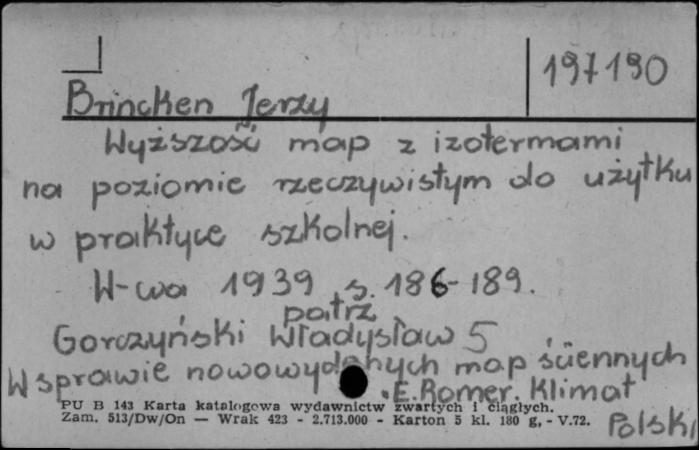 197190
Brincken Jerzy
Wyższość map z izotermami
na poziomie rzeczywistym do użytku
w praktyce szkolnej.
W-wa 1939 s. 186-189.
patrz
Gorczyński Władysław 5
W sprawie nowowydanych map ściennych
. E. Romer. Klimat
Polski
PU B 143 Karta katalogowa wydawnictw zwartych i ciągłych.
Zam. 513/Dw/On — Wrak 423 - 2.713.000 - Karton 5 kl. 180 g, - V.72.